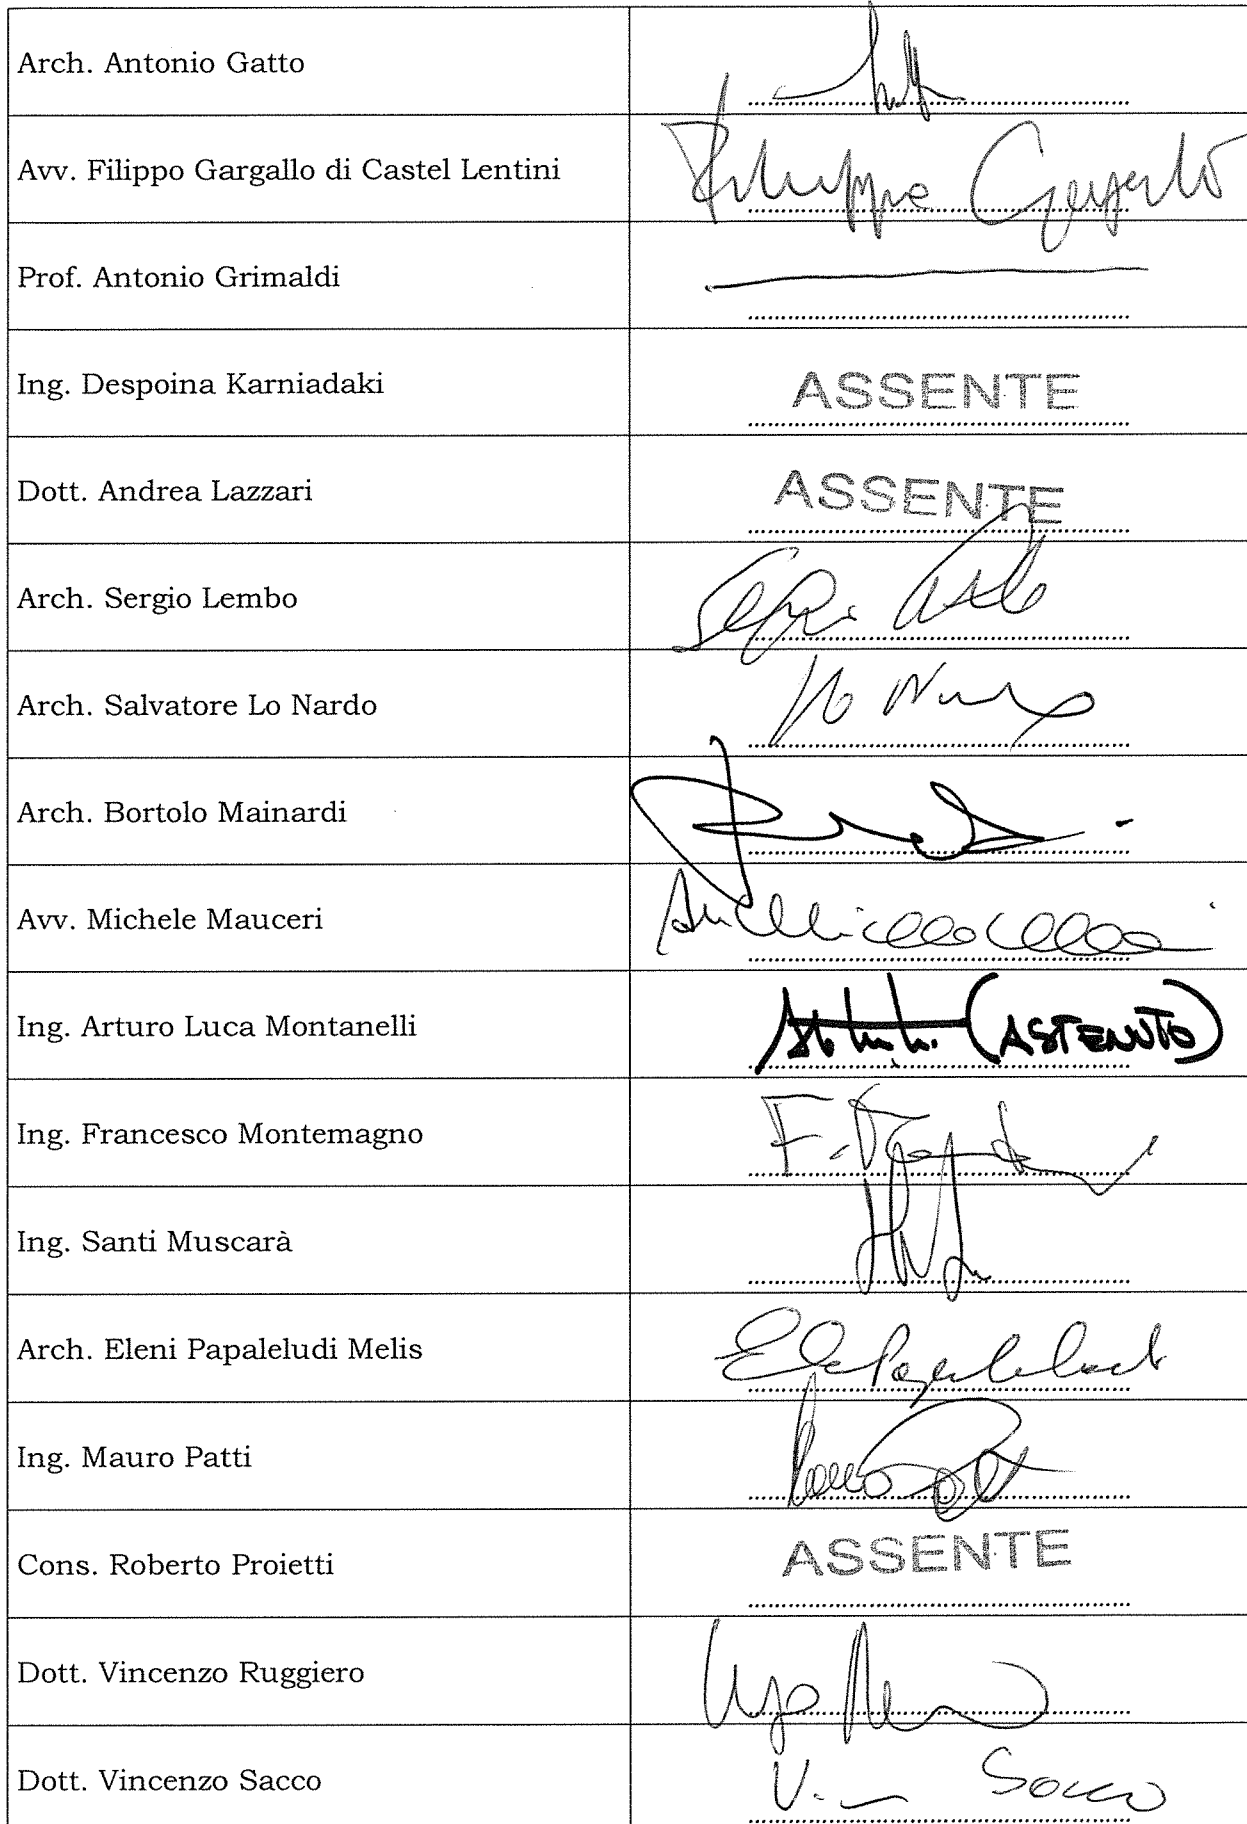 Arch. Antonio Gatto
Avv. Filippo Gargallo di Castel Lentini
Filippo Gargallo
Prof. Antonio Grimaldi
Ing. Despoina Karniadaki ASSENTE
Dott. Andrea Lazzari ASSENTE
Arch. Sergio Lembo
Arch. Salvatore Lo Nardo
Arch. Bortolo Mainardi
Avv. Michele Mauceri
Ing. Arturo Luca Montanelli (ASTENUTO)
Ing. Francesco Montemagno
Ing. Santi Muscarà
Arch. Eleni Papaleludi Melis
Ing. Mauro Patti
Cons. Roberto Proietti ASSENTE
Dott. Vincenzo Ruggiero
Dott. Vincenzo Sacco V. Sacco